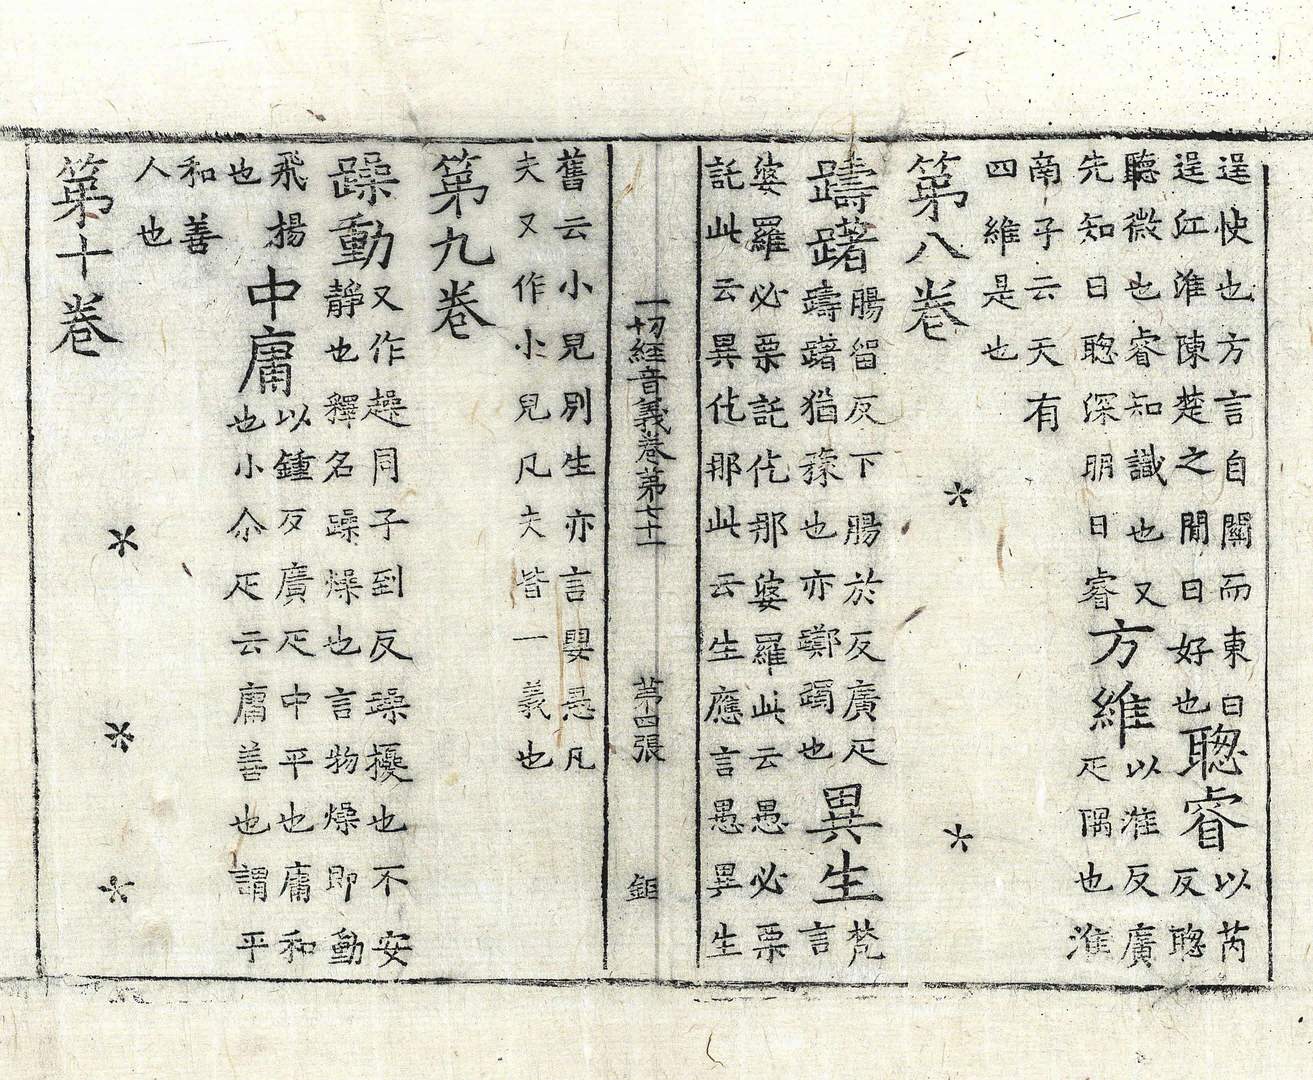 逞快也方言自關而東曰
逞江淮陳楚之閒曰好也
聰睿
以芮
反聰
聽微也睿知識也又
先知曰聰深明曰睿
方維
以淮反廣
疋隅也淮
南子云天有
四維是也
第八卷
躊躇
腸留反下腸於反廣疋
躊躇猶豫也亦躑躅也
異生
梵
言
婆羅必栗託仡那婆羅此云愚必栗
託此云異仡那此云生應言愚異生
一切經音義卷第七十一 第四張 鉅
舊云小兒別生亦言嬰愚凡
夫又作小兒凡夫皆一義也
第九卷
躁動
又作趮同子到反躁擾也不安
靜也釋名躁燥也言物燥即動
飛揚
也
中庸
以鍾反廣疋中平也庸和
也小尒疋云庸善也謂平
和善
人也
第十卷